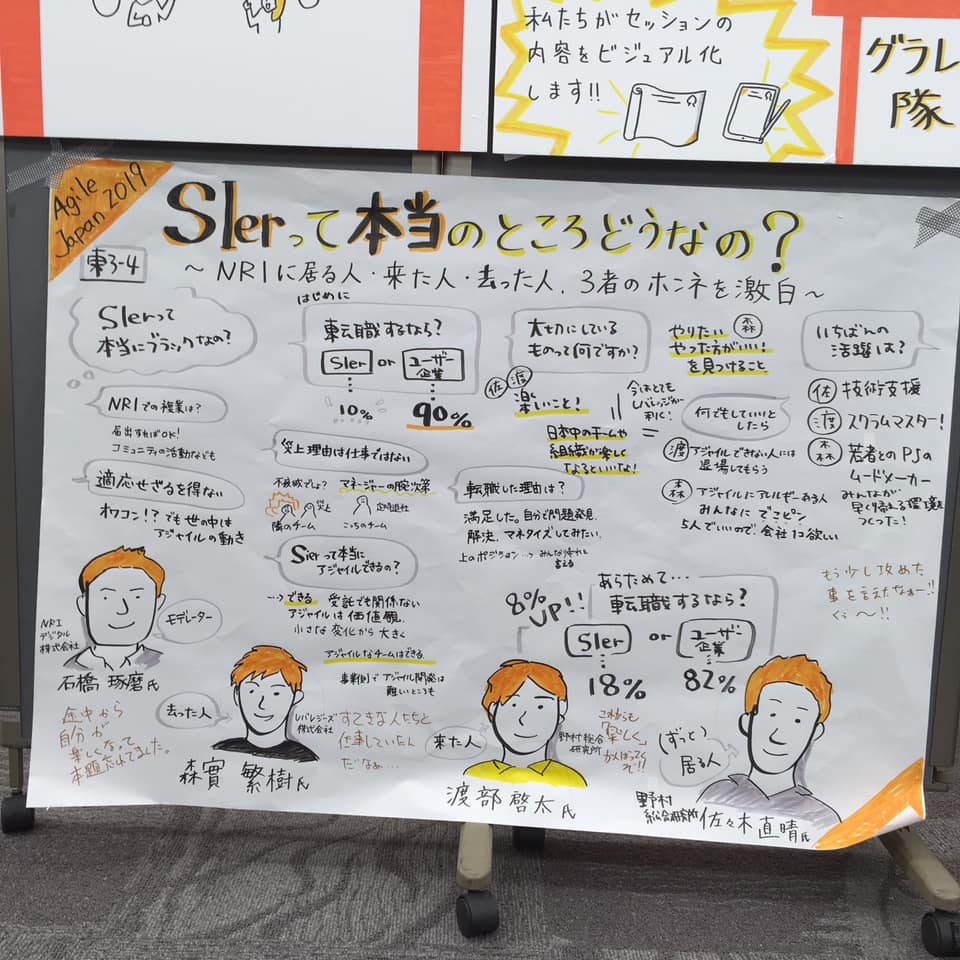 私たちがセッションの
内容をビジュアル化
します!!
グラレ
隊
Agile
Japan 2019
SIerって本当のところどうなの?
東3-4
〜NRIに居る人・来た人・去った人、3者のホンネを激白〜
SIerって
本当にブラックなの?
NRIでの複業は?
届出すればOK!
コミュニティの活動なども
適応せざるを得ない
オワコン!?でも世の中は
アジャイルの動き
はじめに
転職するなら?
SIer or ユーザー
企業
10% 90%
炎上理由は仕事ではない
マネージャーの腕次第
炎上
定時退社
隣のチーム
こっちのチーム
SIerって本当に
アジャイルできるの?
…→できる 受託でも関係ない
アジャイルは価値観、
小さな変化から大きく
アジャイルなチームはできる
事業側でアジャイル開発は
難しいところも
大切にしている
ものって何ですか?
佐 渡
楽しいこと!
日本中のチームや
組織が楽しく
なるといいな!
森
やりたい
やった方がいい!
を見つけること
今はとても
レバレジが
利く!
転職した理由は?
満足した。自分で問題発見、
解決、マネタイズしてみたい、
上のポジション…→みんな帰れと
言える
何でもしていいと
したら
渡 アジャイルできない人には
退場してもらう
森 アジャイルにアレルギーある人
みんなに でこピン
5人でいいので、会社1コ欲しい
いちばんの
活躍は?
佐 技術支援
渡 スクラムマスター!
森 若者とのPJの
ムードメーカー
みんなが
早く帰える環境を
つくった!
あらためて…
転職するなら?
8%
UP!!
SIer or ユーザー
企業
18% 82%
もう少し攻めた
事を言えたなぁー!!
くぅ〜!!
NRI
デジタル
株式会社
モデレーター
石橋 琢磨氏
途中から
自分が
楽しくなって
本題忘れてました。
去った人
レバレジーズ
株式会社
森實 繁樹氏
すてきな人たちと
仕事していたん
だなぁ…
来た人
野村総合
研究所
渡部啓太氏
これからも
「楽しく」
がんばってく
ぞ!!
(ずっと)
居る人
野村
総合研究所
佐々木直晴氏